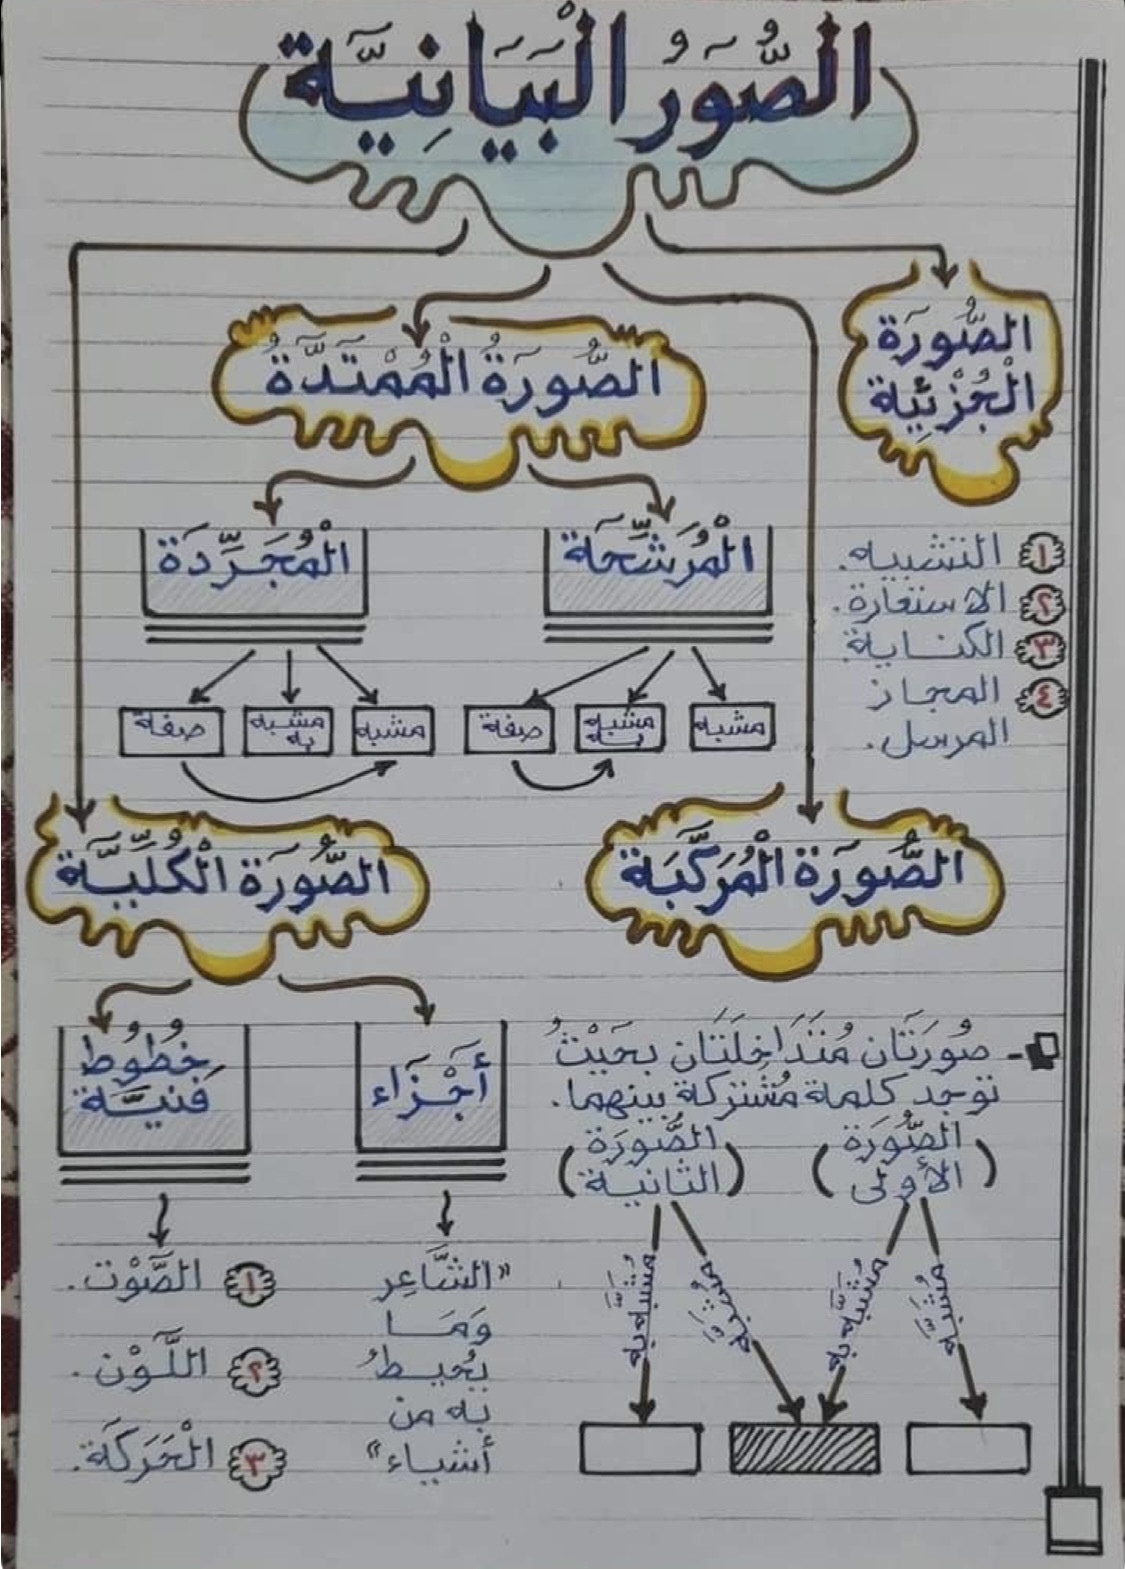 الصُّوَرُ الْبَيَانِيَّة
الصُّورَة
الْجُزْئِية
١ التشبيه.
٢ الاستعارة.
٣ الكناية.
٤ المجاز
المرسل.
الصُّورَةُ الْمُمْتَدَّةُ
الْمُرَشَّحَة
مشبه
مشبه
به
صفة
الْمُجَرَّدَة
مشبه
مشبه
به
صفة
الصُّورَة الْمُرَكَّبَة
صُورَتَان مُتَدَاخِلَتَان بحَيْثُ
توجد كلمة مُشتركة بينهما.
(الصُّورَة
الأولى)
(الصُّورَة
الثانية)
مُشَبَّه
مُشَبَّه به
مُشَبَّه
مُشَبَّه به
الصُّورَة الْكُلِّيَّة
أَجْزَاء
"الشَّاعِر
وَمَا
يُحيطُ
به من
أشياء"
خُطُوط
فَنِيَّة
١ الصَّوْت.
٢ اللَّوْن.
٣ الْحَرَكَة.